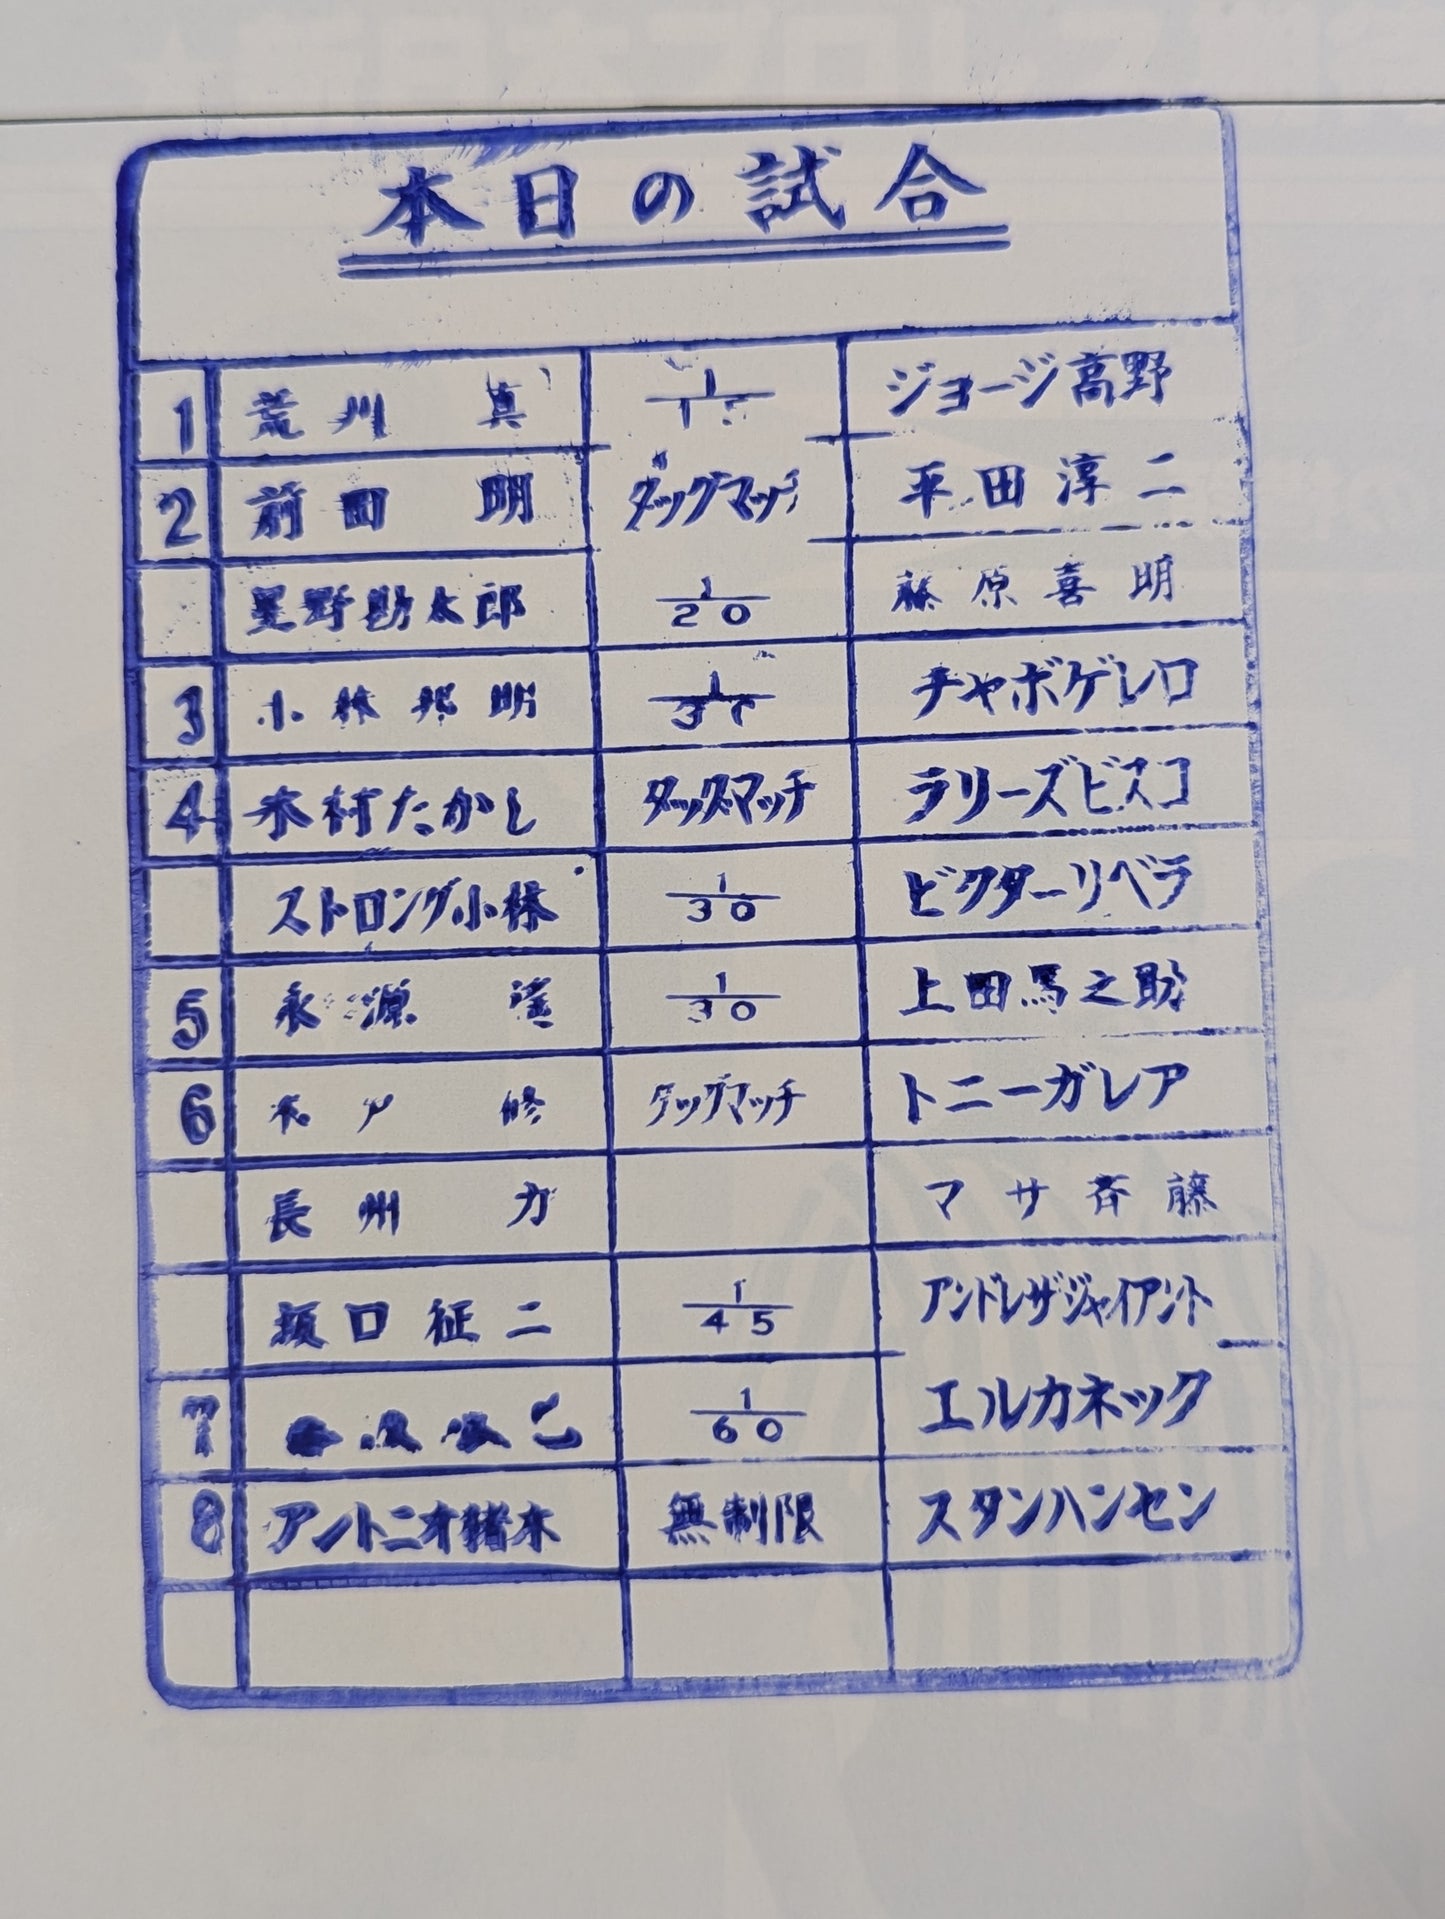 本日の試合
1 荒川 真 1/15 ジョージ高野
2 前田 明 タッグマッチ 平田淳二
星野勘太郎 1/20 藤原喜明
3 小林邦明 1/30 チャボゲレロ
4 木村たかし タッグマッチ ラリーズビスコ
ストロング小林 1/30 ビクターリベラ
5 永源 遙 1/30 上田馬之助
6 木戸 修 タッグマッチ トニーガレア
長州 力 マサ斉藤
坂口征二 1/45 アンドレザジャイアント
7 1/60 エルカネック
8 アントニオ猪木 無制限 スタンハンセン